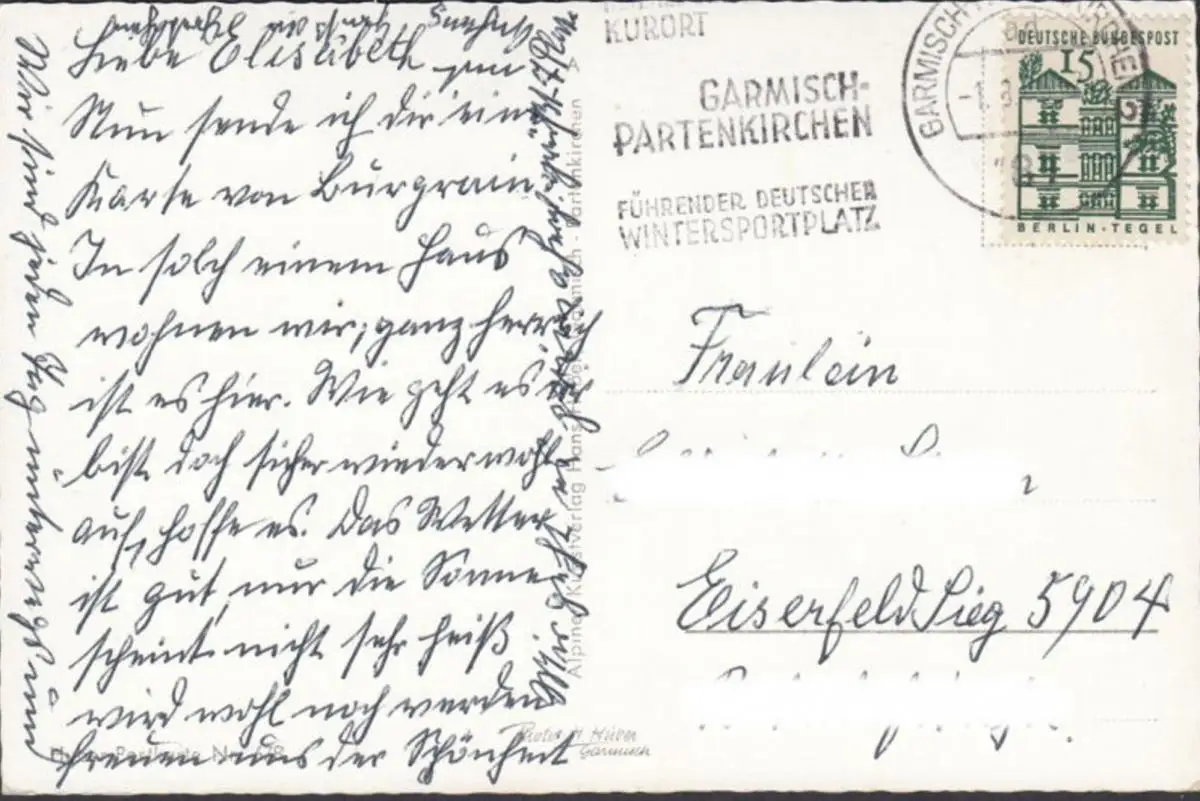 Liebe Elisabeth
Nun sende ich dir eine
Karte von Burgrain.
In solch einem Haus
wohnen wir, ganz herrlich
ist es hier. Wie geht es dir
bist doch sicher wieder wohl
auf, hoffe es. Das Wetter
ist gut, nur die Sonne
scheint nicht sehr heiß
wird wohl noch werden
Wir sind jeden Tag unterwegs und
freuen uns der Schönheit
Mir geht es gut
KURORT
GARMISCH-
PARTENKIRCHEN
FÜHRENDER DEUTSCHER
WINTERSPORTPLATZ
GARMISCH
DEUTSCHE BUNDESPOST
15
BERLIN-TEGEL
Fräulein
Eiserfeld Sieg 5904
Alpiner Kunstverlag Hans Garmisch-Partenkirchen
Huber
Garmisch